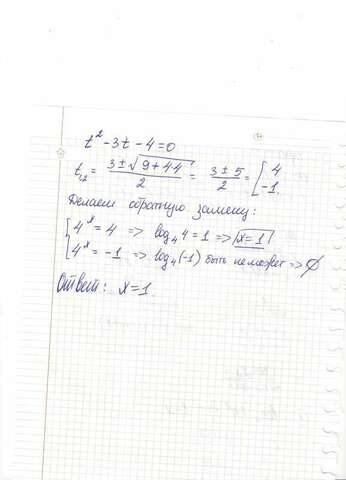 t² - 3t - 4 = 0
t₁,₂ = (3 ± √(9 + 4·4))/2 = (3 ± 5)/2 = [4 -1.
Делаем обратную замену:
[4ˣ = 4 => log₄ 4 = 1 => x = 1
[4ˣ = -1 => log₄(-1) быть не может => ∅
Ответ: x = 1.